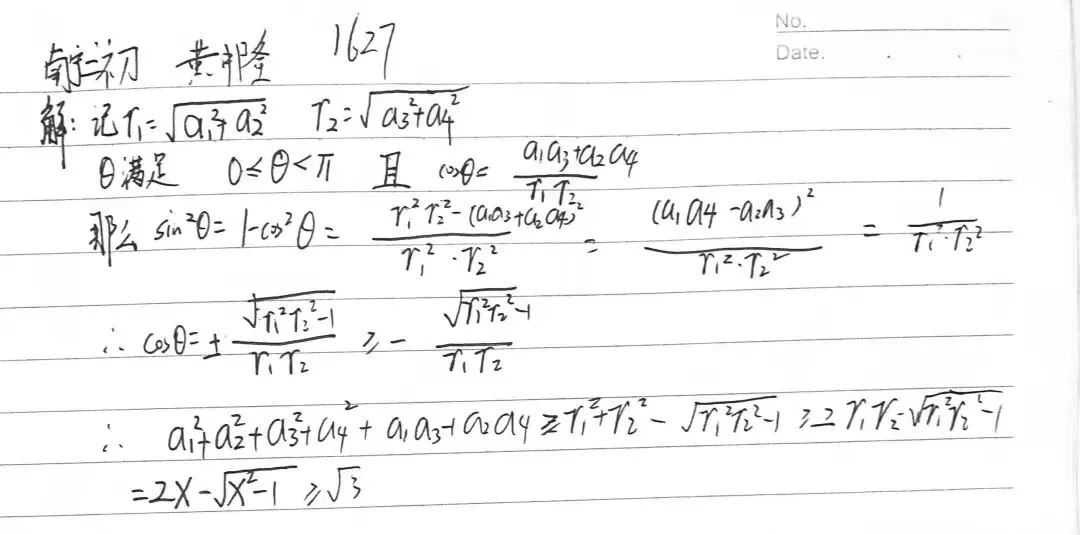 No.
Date.
南宁二初 黄邦隆 1627
解: 记 r₁=√(a₁²+a₂²) r₂=√(a₃²+a₄²)
θ满足 0≤θ<π 且 cosθ= (a₁a₃+a₂a₄)/(r₁r₂)
那么 sin²θ=1-cos²θ= (r₁²r₂²-(a₁a₃+a₂a₄)²)/(r₁²·r₂²) = (a₁a₄-a₂a₃)²/(r₁²·r₂²) = 1/(r₁²·r₂²)
∴ cosθ=± √(r₁²r₂²-1)/(r₁r₂) ≥ - √(r₁²r₂²-1)/(r₁r₂)
∴ a₁²+a₂²+a₃²+a₄²+a₁a₃+a₂a₄ ≥ r₁²+r₂²-√(r₁²r₂²-1) ≥ 2r₁r₂-√(r₁²r₂²-1)
=2x-√(x²-1) ≥√3